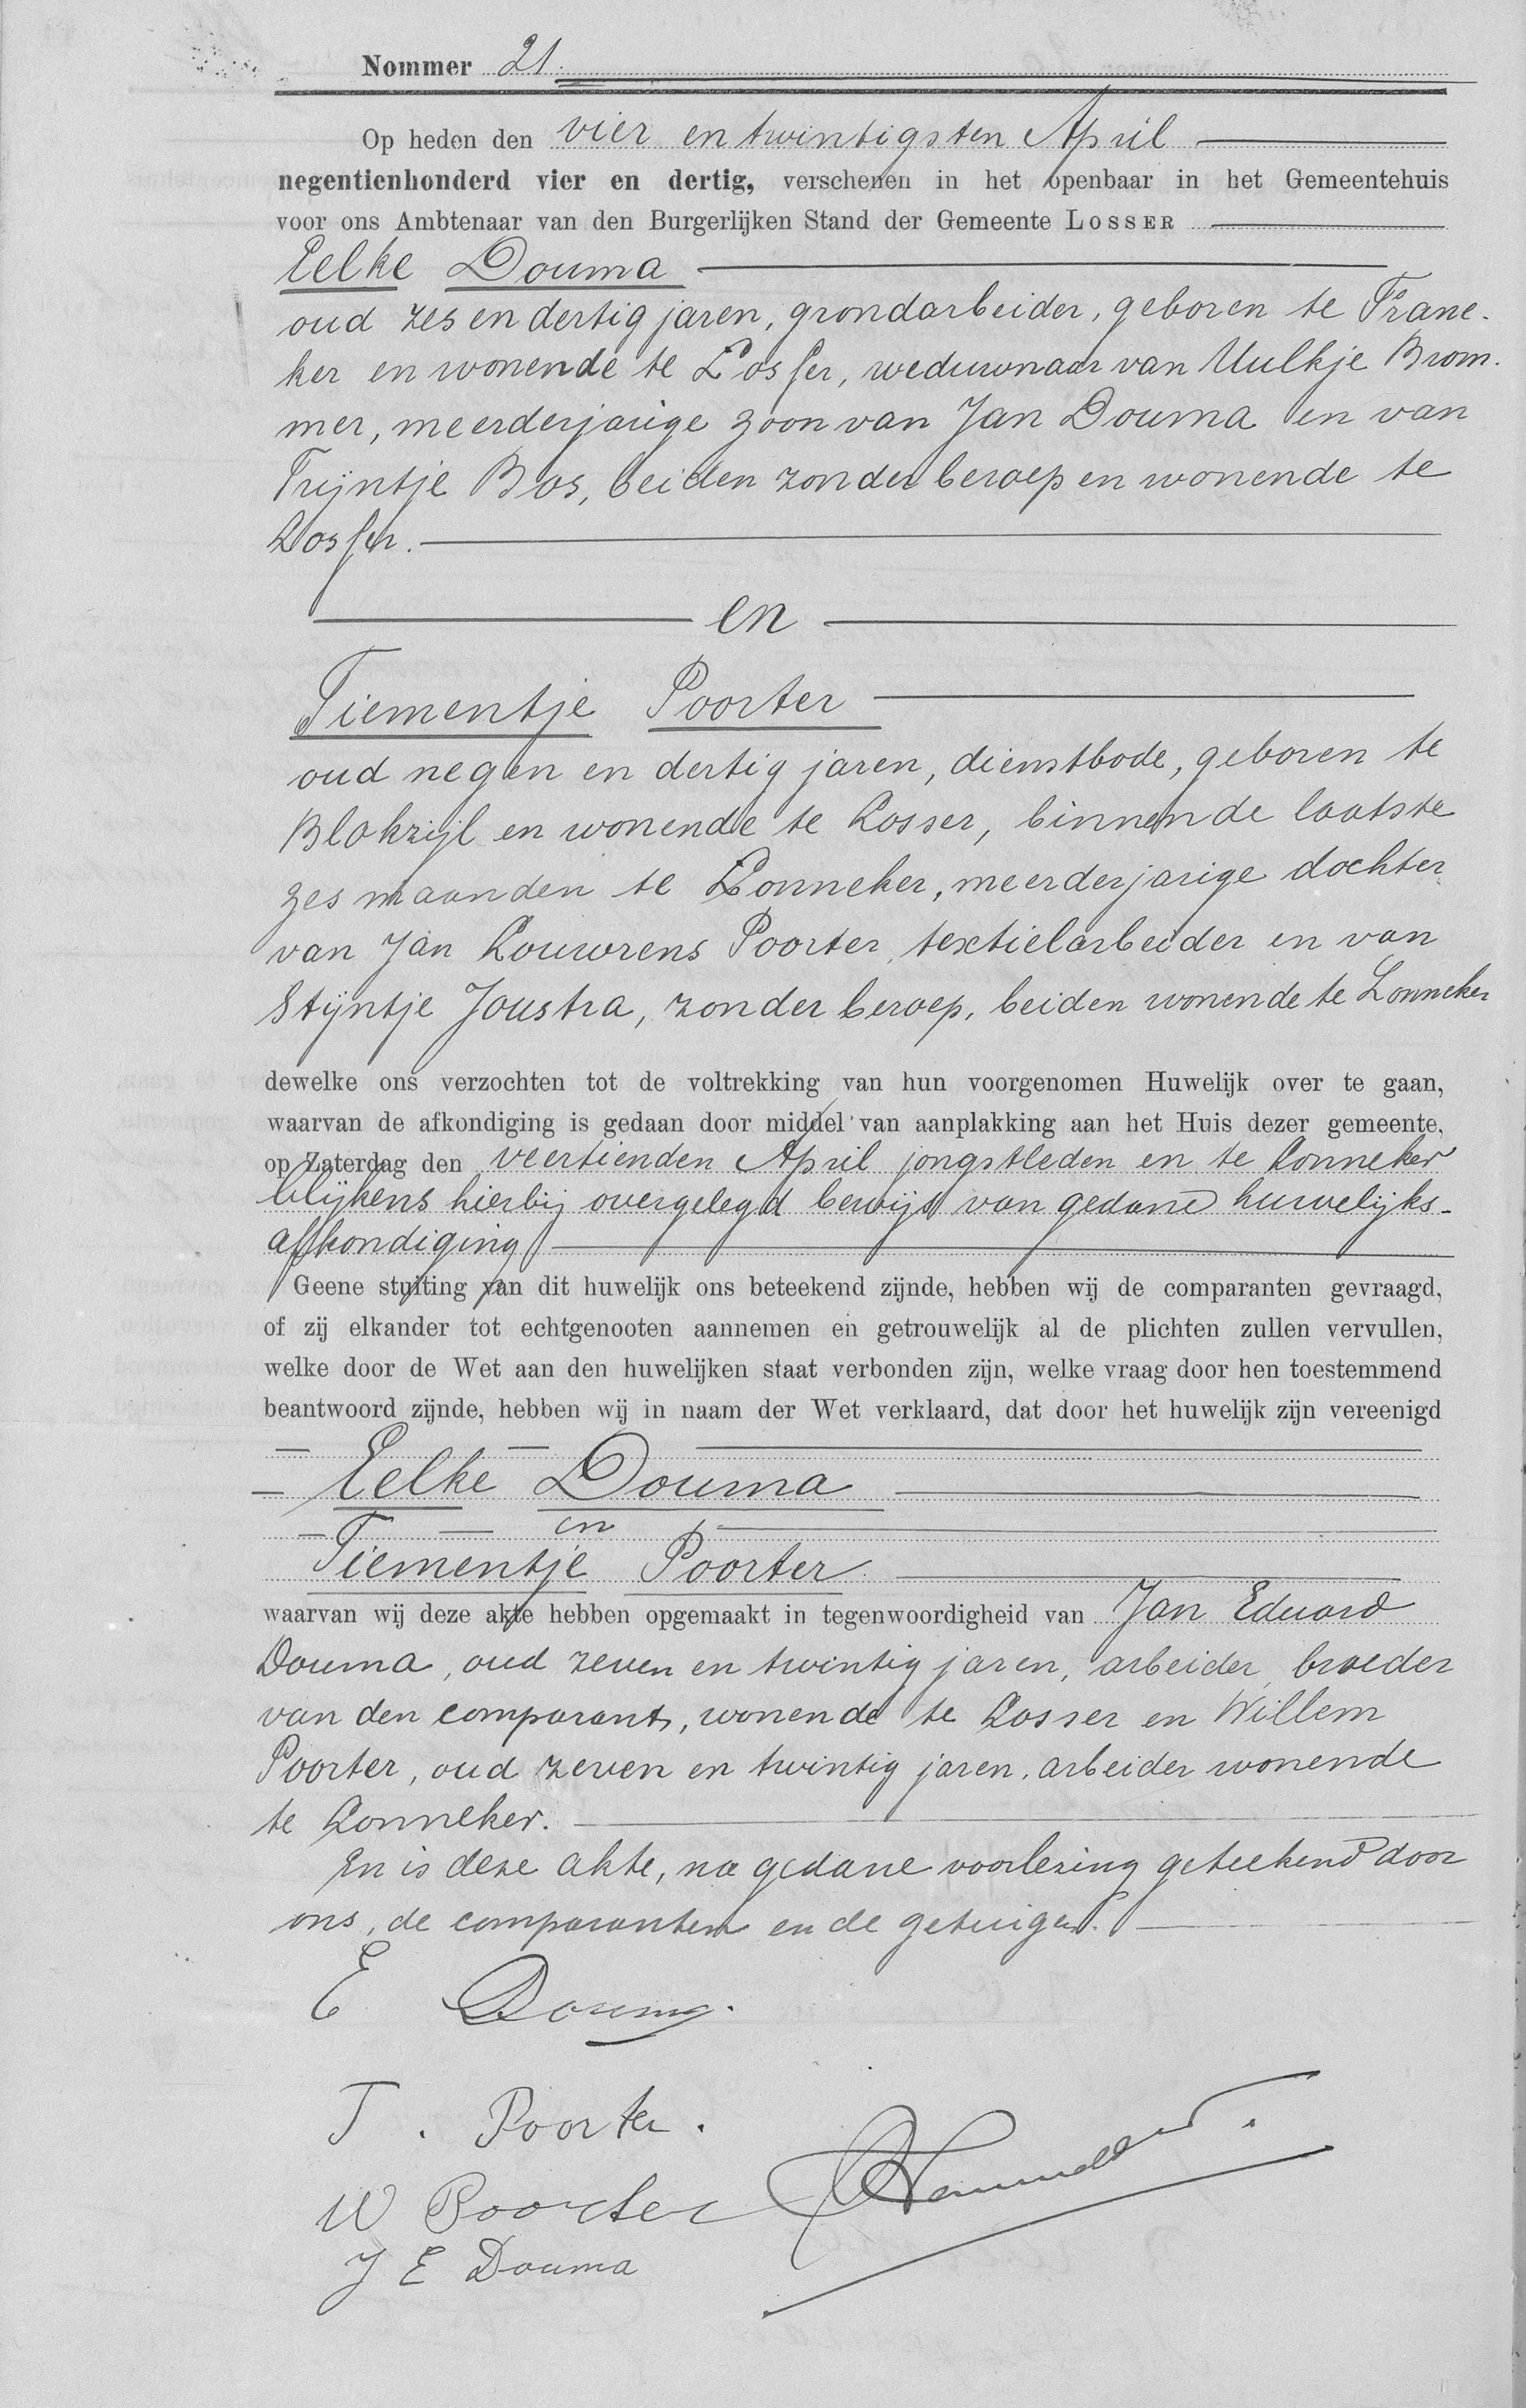 Nommer 21.
Op heden den vier en twintigsten April
negentienhonderd vier en dertig, verschenen in het openbaar in het Gemeentehuis
voor ons Ambtenaar van den Burgerlijken Stand der Gemeente LOSSER
Eelke Douma
oud zes en dertig jaren, grondarbeider, geboren te Frane-
ker en wonende te Losser, weduwnaar van Uulkje Brom-
mer, meerderjarige zoon van Jan Douma en van
Trijntje Bos, beiden zonder beroep en wonende te
Losser.
en
Tiementje Poorter
oud negen en dertig jaren, dienstbode, geboren te
Blokzijl en wonende te Losser, binnen de laatste
zes maanden te Lonneker, meerderjarige dochter
van Jan Louwrens Poorter, textielarbeider en van
Stijntje Joustra, zonder beroep, beiden wonende te Lonneker
dewelke ons verzochten tot de voltrekking van hun voorgenomen Huwelijk over te gaan,
waarvan de afkondiging is gedaan door middel van aanplakking aan het Huis dezer gemeente,
op Zaterdag den veertienden April jongstleden en te Lonneker
blijkens hierbij overgelegd bewijs van gedane huwelijks-
afkondiging
Geene stuiting van dit huwelijk ons beteekend zijnde, hebben wij de comparanten gevraagd,
of zij elkander tot echtgenooten aannemen en getrouwelijk al de plichten zullen vervullen,
welke door de Wet aan den huwelijken staat verbonden zijn, welke vraag door hen toestemmend
beantwoord zijnde, hebben wij in naam der Wet verklaard, dat door het huwelijk zijn vereenigd
Eelke Douma
en
Tiementje Poorter
waarvan wij deze akte hebben opgemaakt in tegenwoordigheid van Jan Eduard
Douma, oud zeven en twintig jaren, arbeider, broeder
van den comparant, wonende te Losser en Willem
Poorter, oud zeven en twintig jaren, arbeider wonende
te Lonneker.
En is deze akte, na gedane voorlezing geteekend door
ons, de comparanten en de getuigen.
E Douma.
T. Poorter.
W Poorter
J E Douma